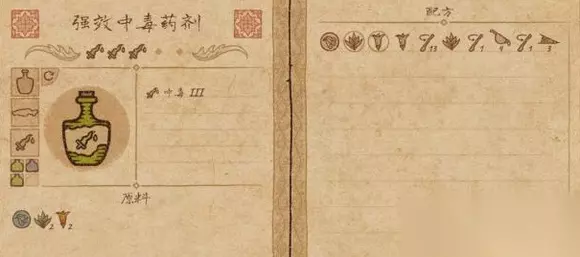 强效中毒药剂
中毒 III
原料
2 2
配方
13 1 4 1 3